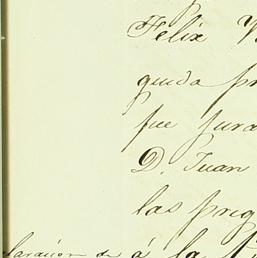 Felix
quida pr
fue jura
D. Juan
las preg
laracion de á la